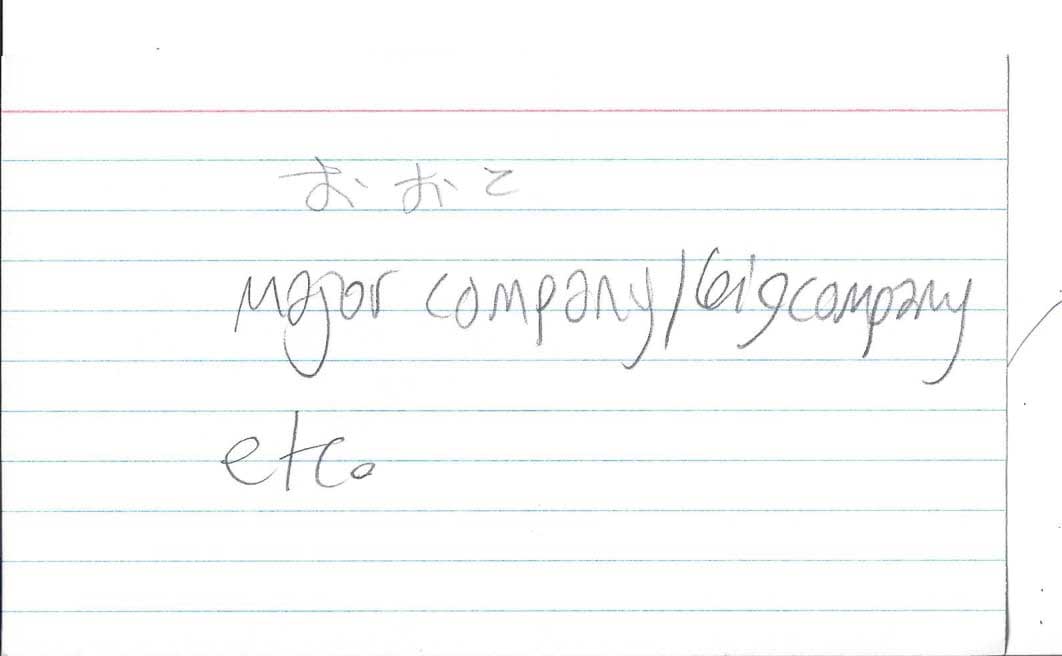 おおこ
Major company/big company
etc。